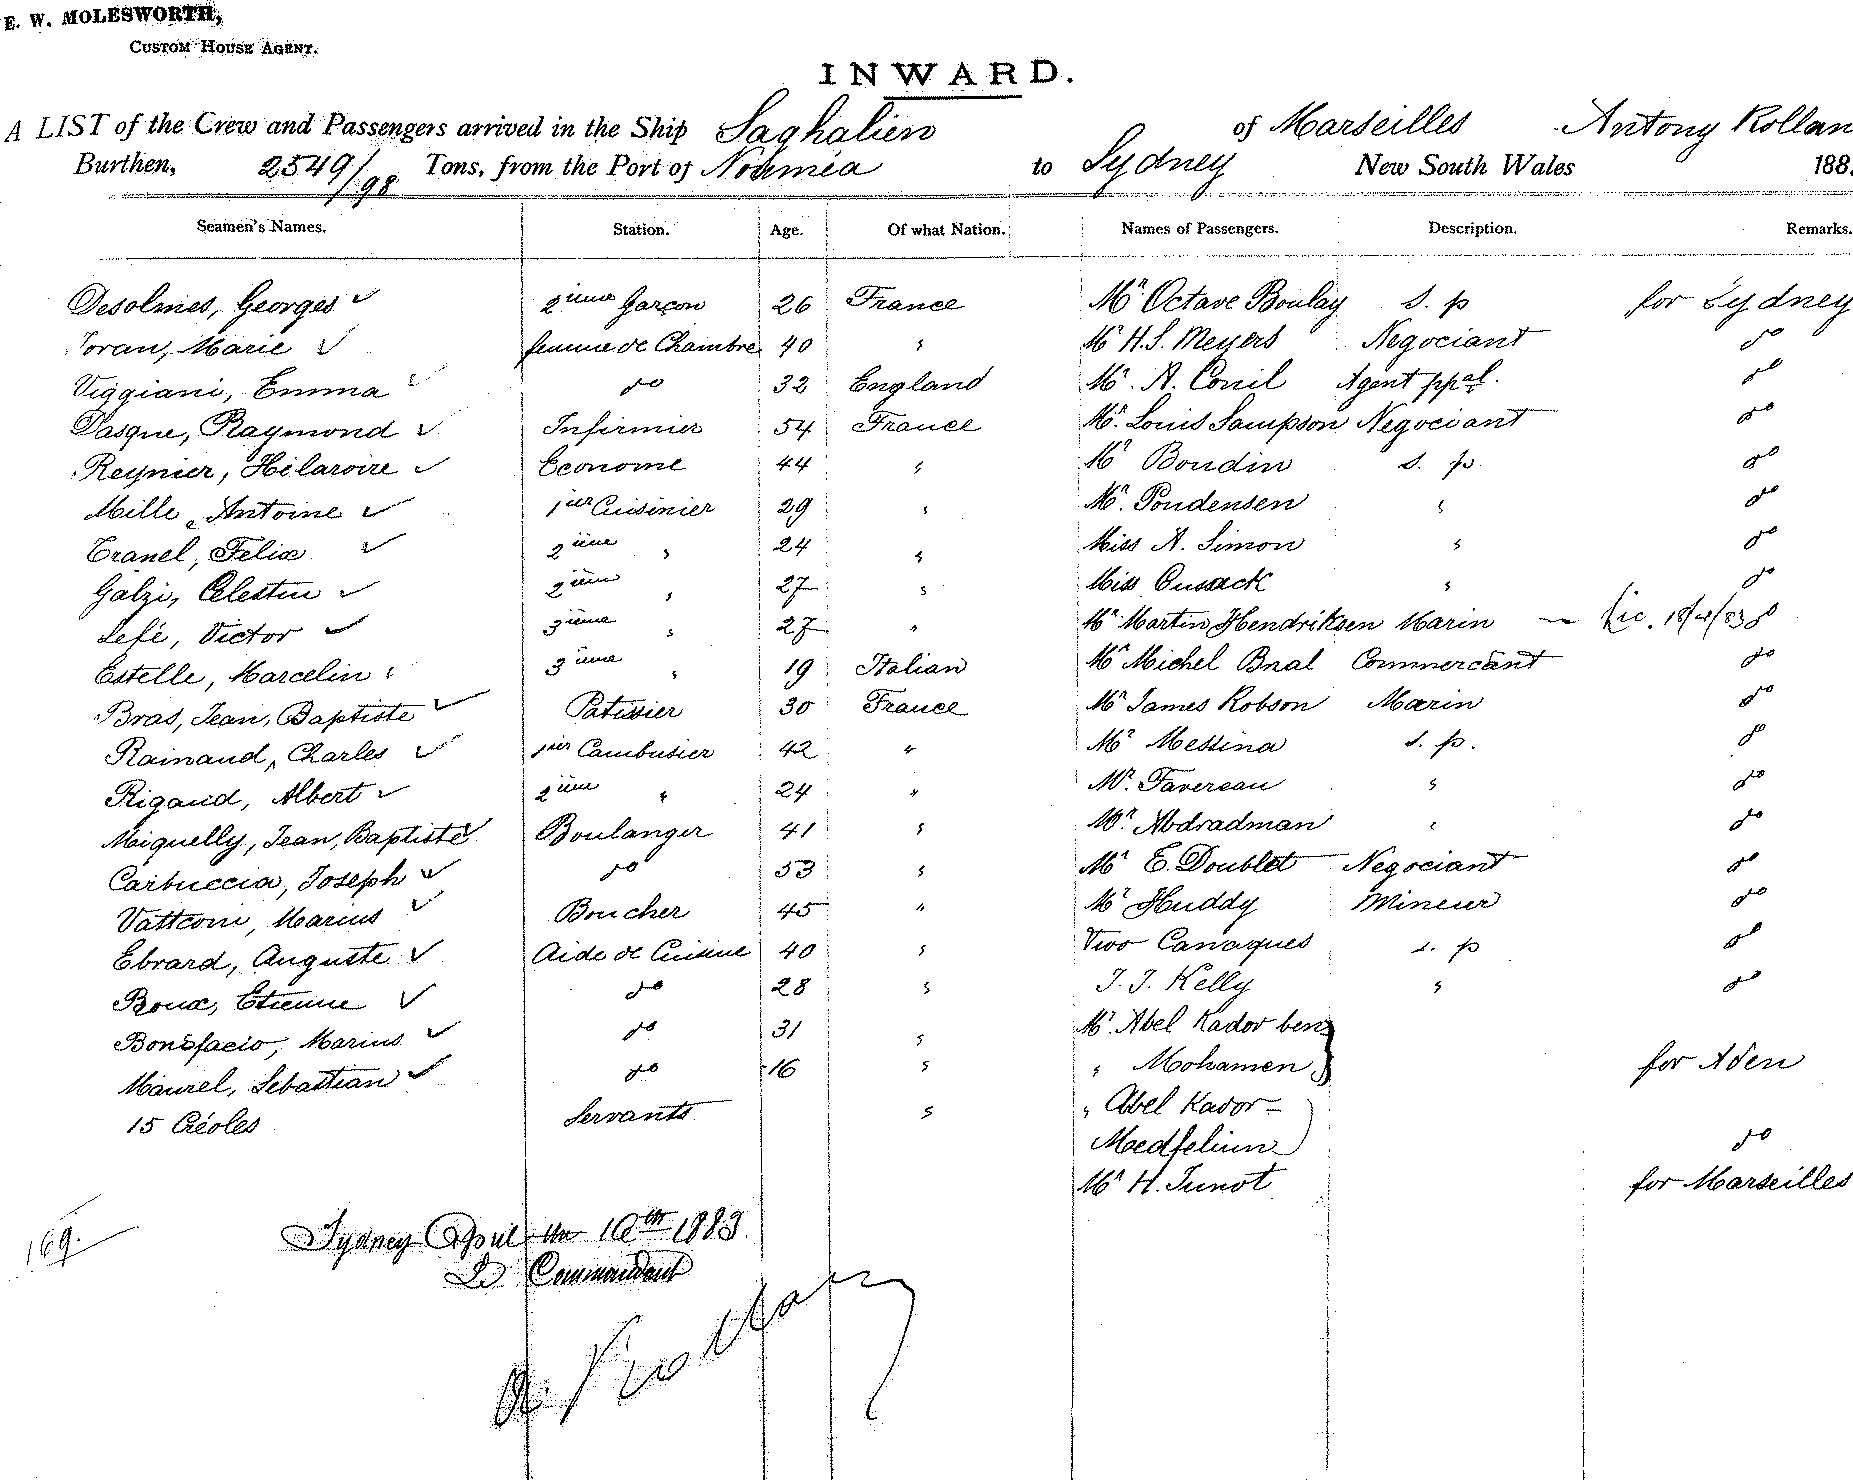 E. W. MOLESWORTH,
CUSTOM HOUSE AGENT.
INWARD.
A LIST of the Crew and Passengers arrived in the Ship Saghalien of Marseilles Antony Rollan
Burthen, 2549/98 Tons, from the Port of Noumea to Sydney New South Wales 188.
Seamen's Names. Station. Age. Of what Nation. Names of Passengers. Description. Remarks.
Desolmes, Georges ✓ 2ième Garçon 26 France Mr Octave Boulay s. p for Sydney
Toran, Marie ✓ femme de Chambre 40 " Mr H. S. Meyers Negociant do
Viggiani, Emma ✓ do 32 England Mr. A. Conil Agent ppal. do
Pasque, Raymond ✓ Infirmier 54 France Mr. Louis Sampson Negociant do
Reynier, Hilaroire ✓ Econome 44 " Mr Boudin s. p. do
Mille, Antoine ✓ 1ier Cuisinier 29 " Mr. Pondensen " do
Tranel, Felix ✓ 2ième " 24 " Miss A. Simon " do
Galzi, Celestin ✓ 2ième " 27 " Miss Cusack " do
Lefé, Victor ✓ 3ième " 27 " Mr Martin Hendriksen Marin — Lic. 18/4/83 do
Estelle, Marcelin 3ième " 19 Italian Mr Michel Bnal Commercant do
Bras, Jean, Baptiste ✓ Patissier 30 France Mr James Robson Marin do
Rainaud, Charles ✓ 1ier Cambusier 42 " Mr Messina s. p. do
Rigaud, Albert ✓ 2ième " 24 " Mr. Favereau " do
Miquelly, Jean, Baptiste ✓ Boulanger 41 " Mr Abdradman " do
Carbuccia, Joseph ✓ do 53 " Mr E. Doublet Negociant do
Vattconi, Marius ✓ Boucher 45 " Mr Huddy Mineur do
Ebrard, Auguste ✓ Aide de Cuisine 40 " Two Canaques s. p do
Roux, Etienne ✓ do 28 " J. J. Kelly " do
Bonifacio, Marius ✓ do 31 " Mr. Abel Kador ben
Maurel, Sebastian ✓ do 16 " " Mohamen for Aden
15 Créoles Servants " " Abel Kador-
Medfelium do
Mr H. Junot for Marseilles
169.
Sydney April the 10th 1883.
Le Commandant
A. Rollan